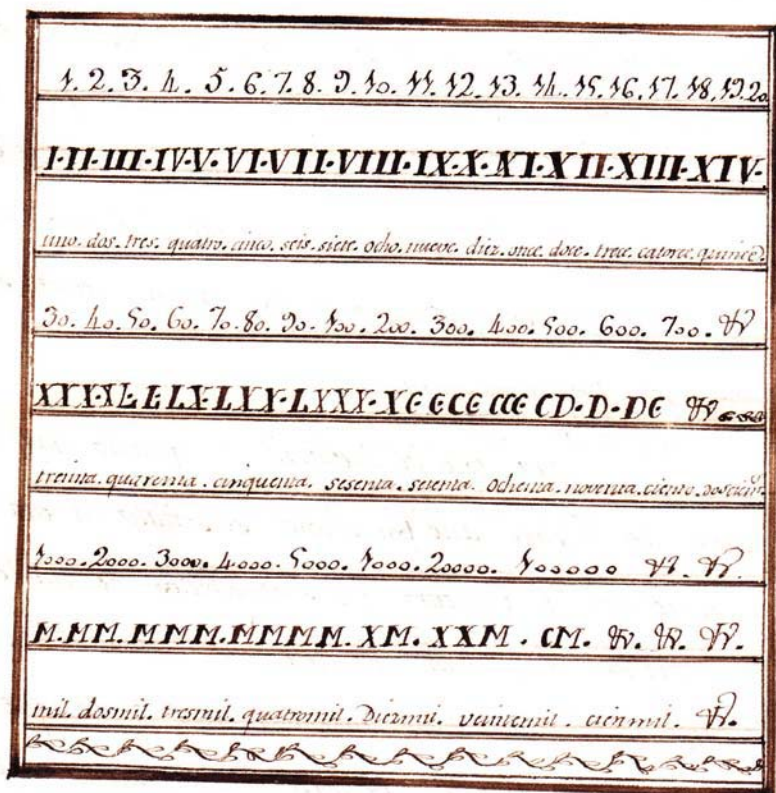 1. 2. 3. 4. 5. 6. 7. 8. 9. 10. 11. 12. 13. 14. 15. 16. 17. 18. 19. 20.
I·II·III·IV·V·VI·VII·VIII·IX·X·XI·XII·XIII·XIV·
uno. dos. tres. quatro. cinco. seis. siete. ocho. nueve. diez. once. doce. trece. catorce. quince.
30. 40. 50. 60. 70. 80. 90. 100. 200. 300. 400. 500. 600. 700. &
XXX·XL·L·LX·LXX·LXXX·XC C CC CCC CD·D·DC &
treinta. quarenta. cinquenta. sesenta. setenta. ochenta. noventa. ciento. doscientos
1000. 2000. 3000. 4000. 5000. 1000. 20000. 100000 &. &.
M. MM. MMM. MMMM. XM. XXM. CM. &. &. &.
mil. dosmil. tresmil. quatromil. Diezmil. veintemil. cienmil. &.